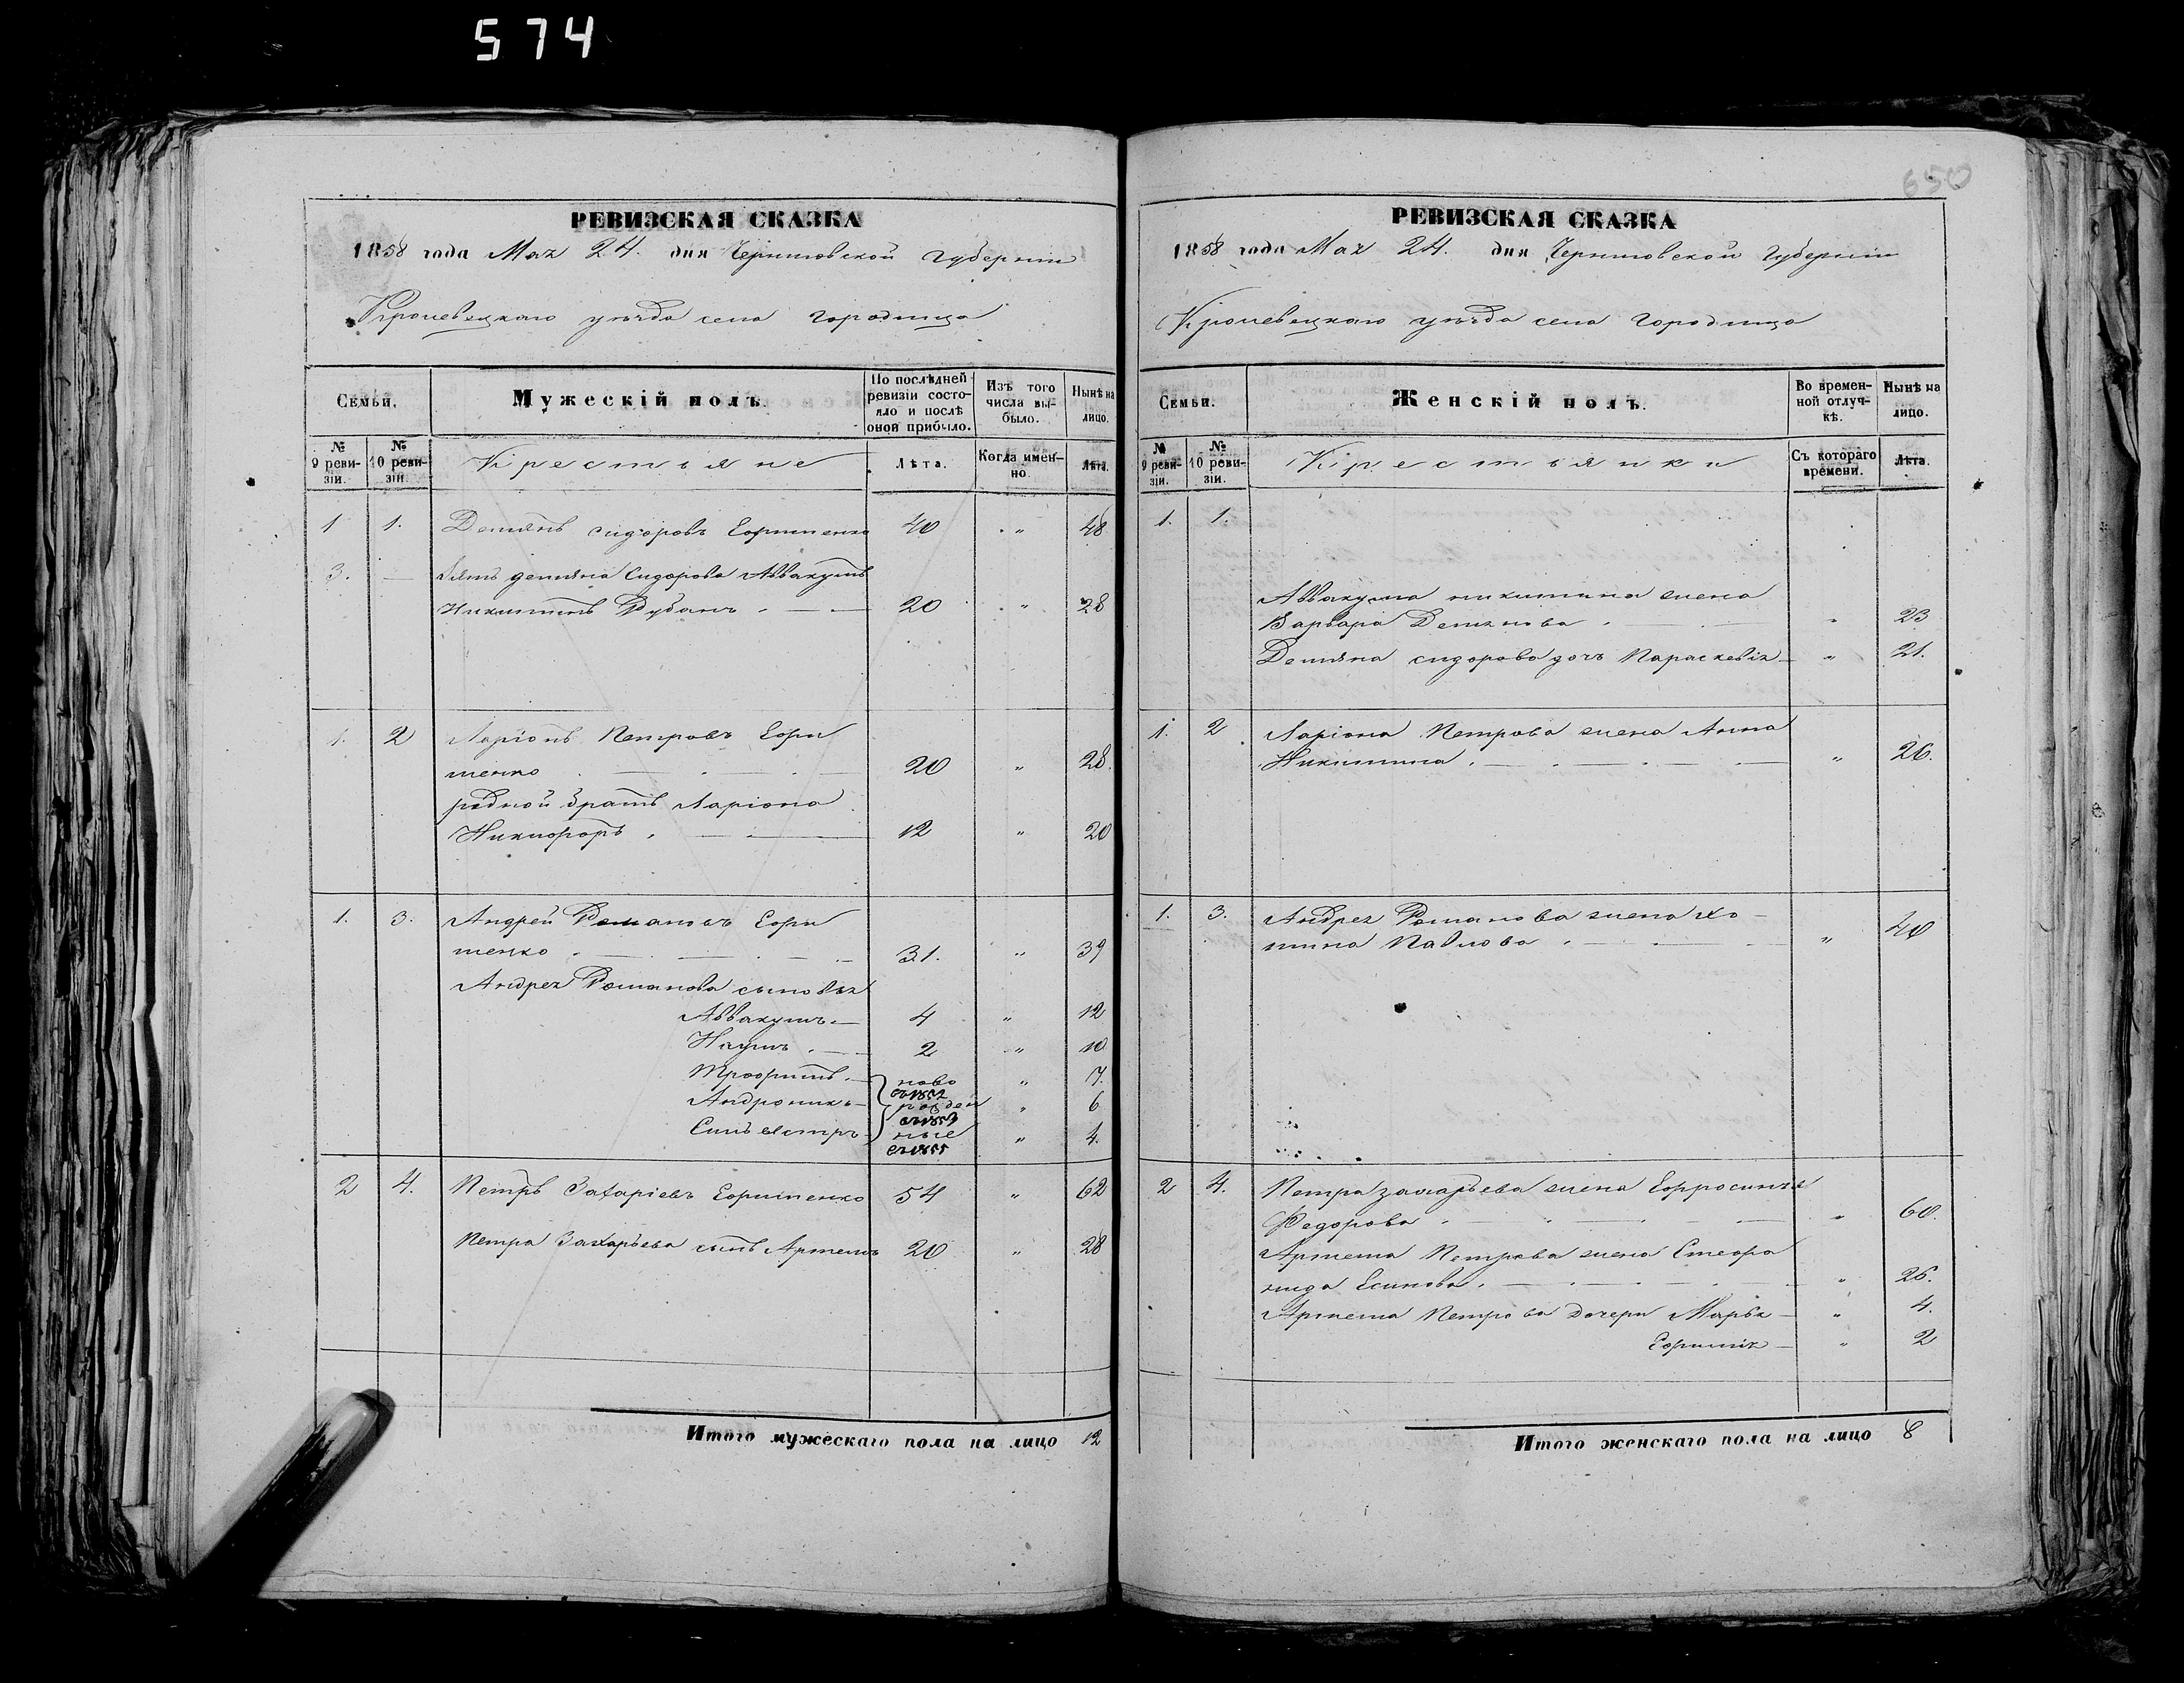 574
РЕВИЗСКАЯ СКАЗКА
1858 года Мая 24. дня Черниговской Губерніи
Кролевецкаго уѣзда села Городища
Семьи.
Мужескій полъ.
По послѣдней ревизіи состояло и послѣ оной прибыло.
Изъ того числа выбыло.
Нынѣ на лицо.
№ 9 ревизіи.
№ 10 ревизіи.
Крестьяне
Лѣта.
Когда именно.
Лѣта.
1 1. Демянъ Сидоровъ Ефименко 40 " 48
3. — Зять демяна Сидорова Аввакумъ
Никитинъ Рубанъ 20 " 28
1. 2 Ларіонъ Петровъ Ефи
менко 20 " 28.
родной братъ Ларіона
Никифоръ 12 " 20
1. 3. Андрей Романовъ Ефи
менко 31. " 39
Андрея Романова сыновья
Аввакумъ 4 " 12
Наумъ 2 " 10
Трофимъ ново " 7.
Андроникъ рожден " 6
Сильвестръ ные " 4.
2 4. Петръ Захаріевъ Ефименко 54 " 62
Петра Захарьева сынъ Артемъ 20 " 28
Итого мужескаго пола на лицо 12
650
РЕВИЗСКАЯ СКАЗКА
1858 года Мая 24. дня Черниговской Губерніи
Кролевецкаго уѣзда села Городища
Семьи.
Женскій полъ.
Во временной отлучкѣ.
Нынѣ на лицо.
№ 9 ревизіи.
№ 10 ревизіи.
Крестьянки
Съ котораго времени.
Лѣта.
1. 1.
Аввакума никитина жена
Варвара Демянова " 23
Демяна сидорова дочь Параскевія " 21.
1. 2 Ларіона Петрова жена Анна
Никитина " 26.
1. 3. Андрея Романова жена Хо
тина Павлова " 40
2 4. Петра захарьева жена Ефросинья
Федорова " 60.
Артема Петрова жена Стефа
нида Есипова " 26.
Артема Петрова дочери Марья " 4.
Ефимія " 2
Итого женскаго пола на лицо 8